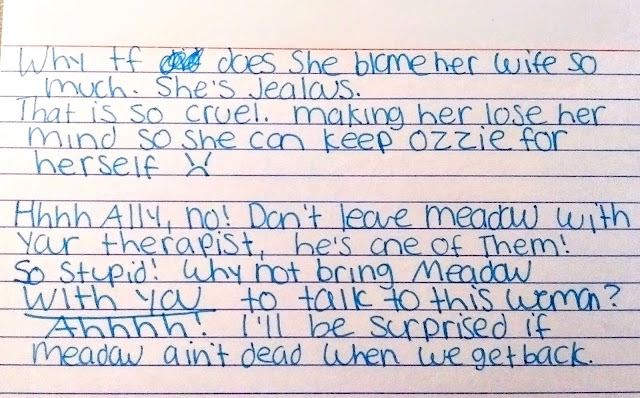 Why tf does She blame her wife so
much. She's Jealous.
That is so cruel. making her lose her
mind so she can keep Ozzie for
herself
Hhhh Ally, no! Don't leave meadow with
your therapist, he's one of Them!
So Stupid! Why not bring Meadow
with you to talk to this woman?
Ahhhh! I'll be surprised if
meadow ain't dead when we get back.